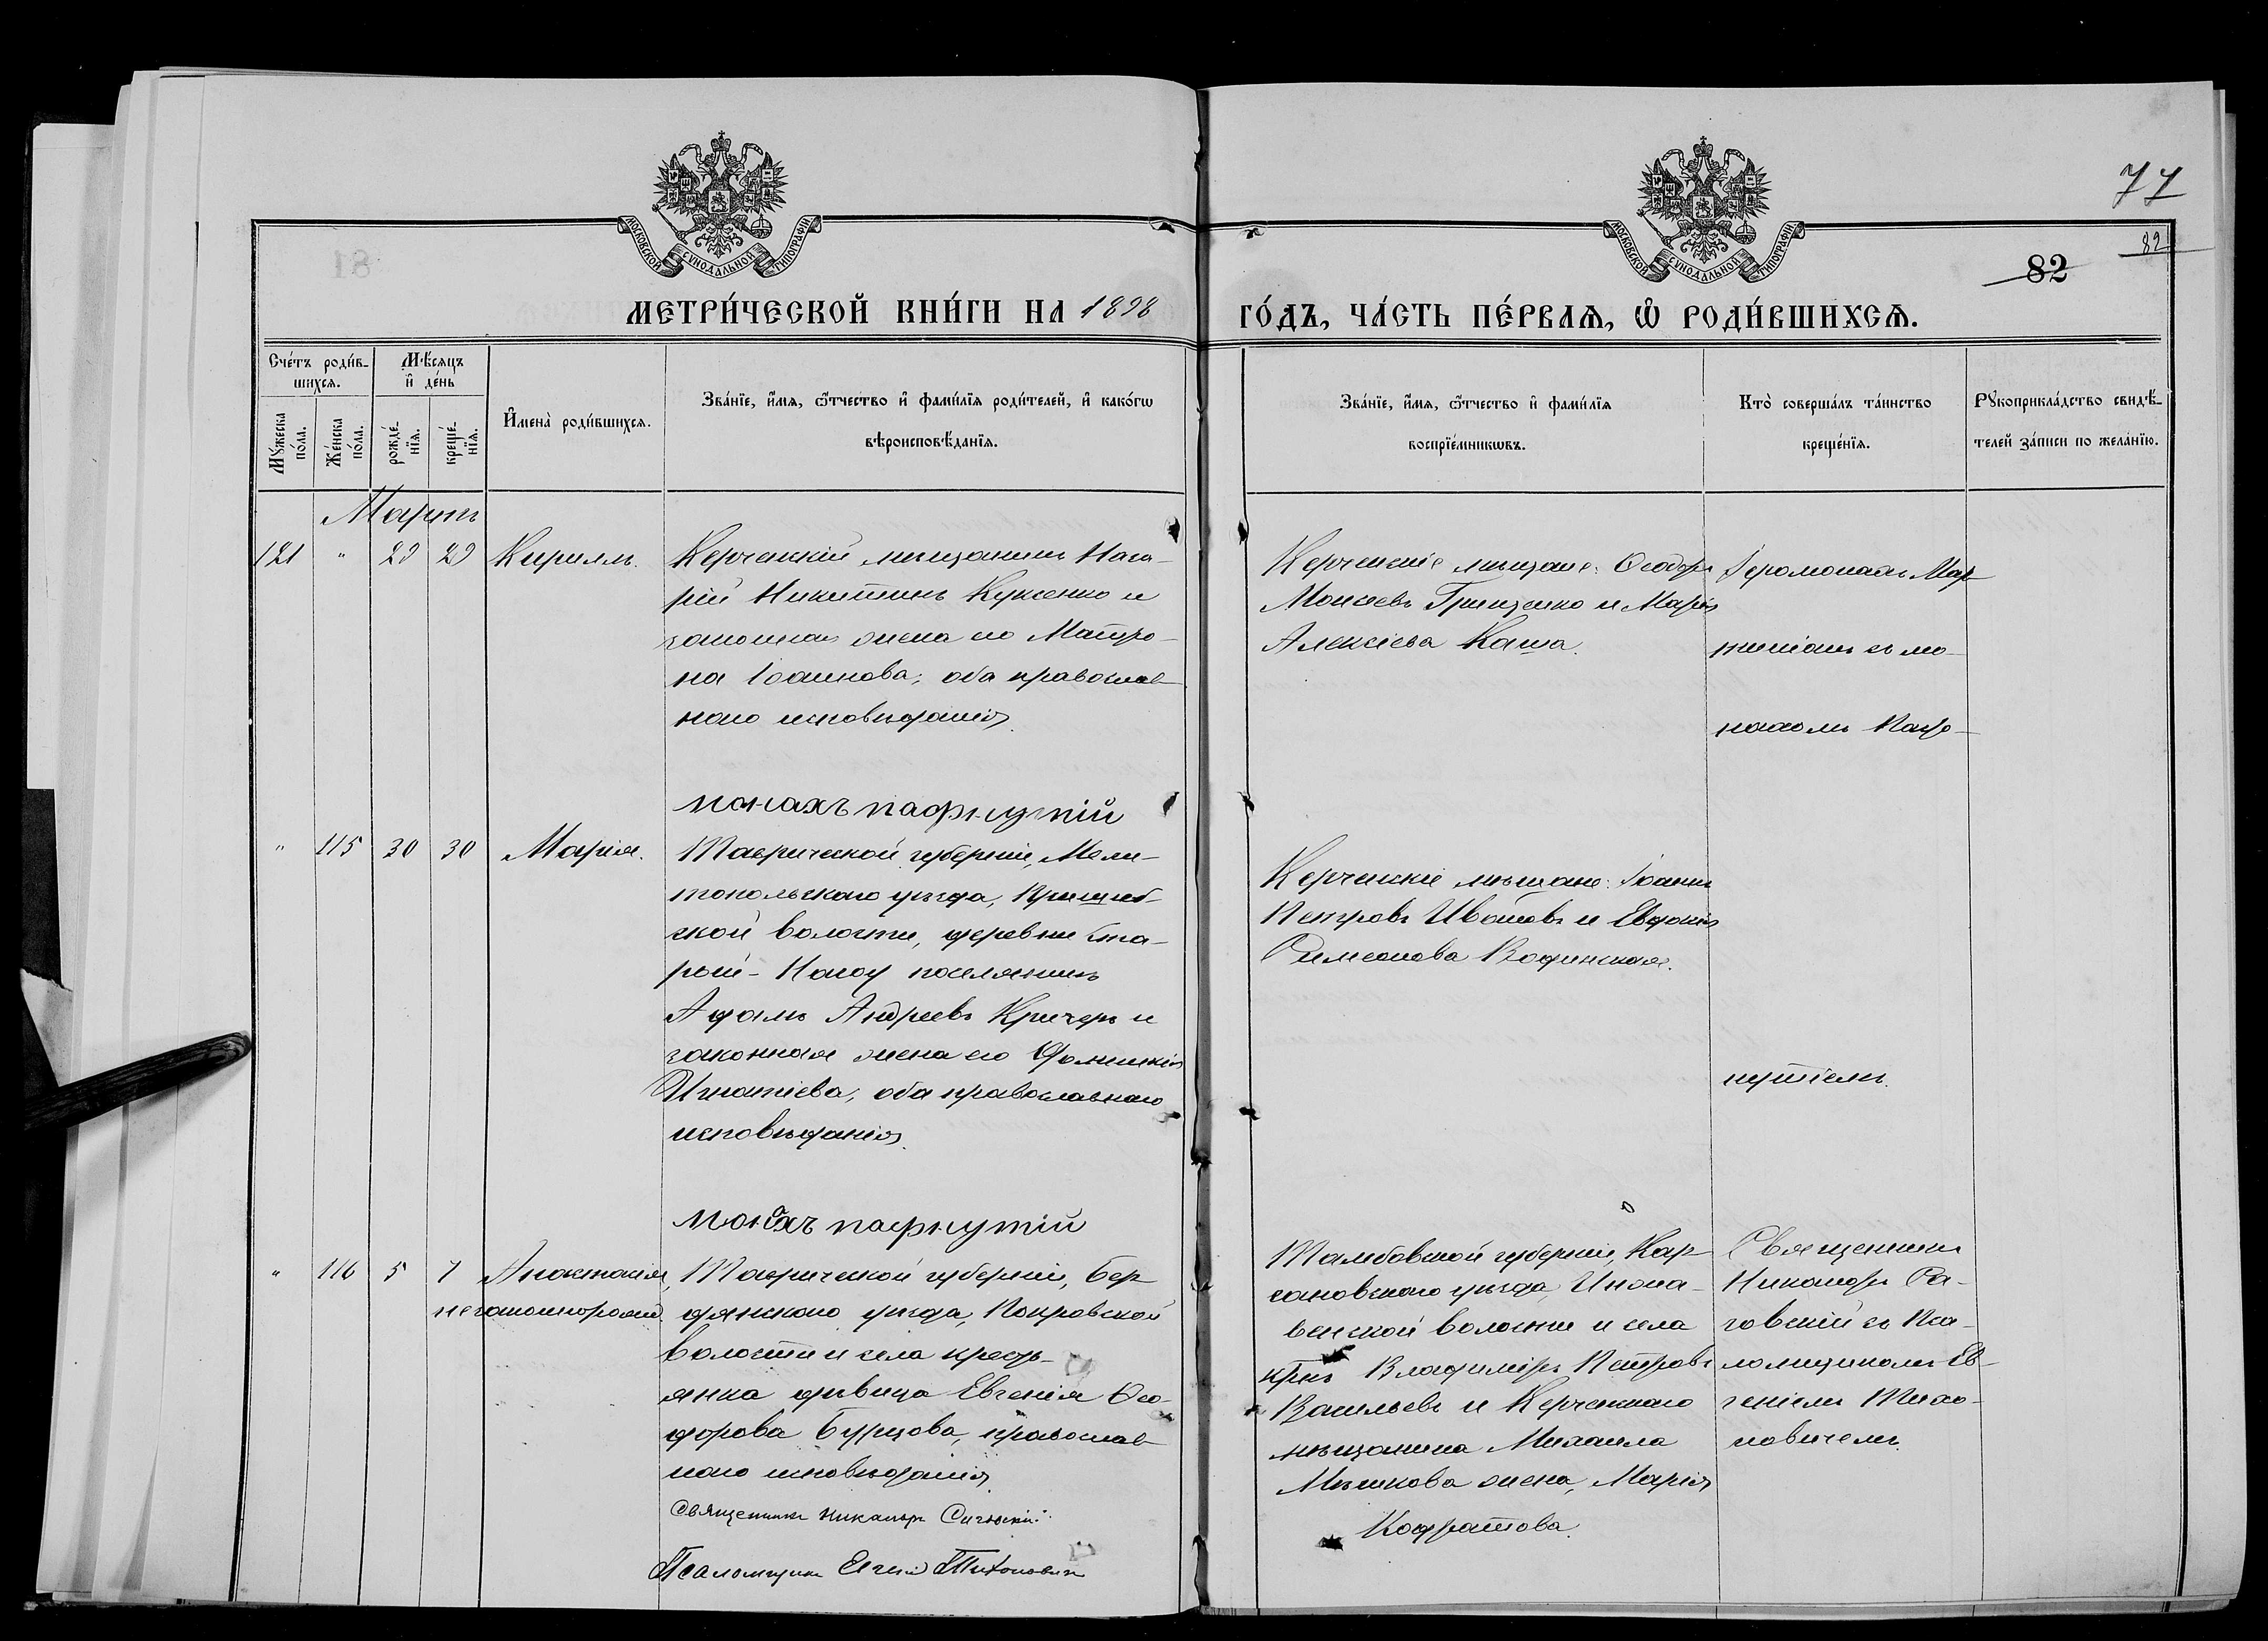 77
82
82
МОСКОВСКОЙ СѴНОДАЛЬНОЙ ТИПОГРАФІИ
МОСКОВСКОЙ СѴНОДАЛЬНОЙ ТИПОГРАФІИ
МЕТРИ́ЧЕСКОЙ КНИ́ГИ НА 1898 ГО́ДЪ, ЧА́СТЬ ПЕ́РВАѦ, Ѡ РОДИ́ВШИХСѦ.
Сче́тъ роди́в-
шихсѧ.
Мꙋ́жеска
по́ла.
Же́нска
по́ла.
Мѣ́сѧцъ
и҆ де́нь
рожде́-
нїѧ.
креще́-
нїѧ.
И҆мена̀ роди́вшихсѧ.
Зва́нїе, и҆́мѧ, ѻ҆́тчество и҆ фами́лїѧ роди́телей, и҆ како́гѡ
вѣроисповѣ́данїѧ.
Зва́нїе, и҆́мѧ, ѻ҆́тчество и҆ фами́лїѧ
воспрїе́мникѡвъ.
Кто̀ соверша́лъ та́инство
креще́нїѧ.
Рꙋкоприкла́дство свидѣ́-
телей за́писи по жела́нїю.
Мартъ
121 " 29 29 Кириллъ.
Керченскій мѣщанинъ Наза-
рій Никитинъ Куксенко и
законная жена его Матро-
на Іоаннова; оба православ-
наго исповѣданія.
Керченскіе мѣщане: Ѳеодоръ
Моисеевъ Гриценко и Марія
Алексіева Каша.
Іеромонахъ Мар-
тиніанъ съ мо-
нахомъ Паф-
монахъ пафнутій
" 115 30 30 Марія.
Таврической губерніи, Мели-
топольскаго уѣзда, Пришиб-
ской волости, деревни Ста-
рой-Нагоу поселянинъ
Адамъ Андреевъ Кричеръ и
законная жена его Домникія
Игнатіева, оба православнаго
исповѣданія.
Керченскіе мѣщане: Іоаннъ
Петровъ Ивановъ и Евдокія
Симеонова
нутіемъ.
монахъ пафнутій
" 116 5 7 Анастасія,
незаконнорожд.
Таврической губерніи, Бер-
дянскаго уѣзда, Покровской
волости и села кресть-
янка дѣвица Евгенія Ѳео-
дорова Бурцова, православ-
наго исповѣданія.
Тамбовской губерніи, Кир-
сановскаго уѣзда,
волости и села
крнъ Владиміръ Петровъ
Васильевъ и Керченскаго
мѣщанина Михаила
Мѣшкова жена, Марія
Кодратова.
Священникъ
Никаноръ Са-
говскій съ Пса-
ломщикомъ Ев-
геніемъ Тихо-
новичемъ.
Священникъ Никаноръ
Псаломщикъ Евгеній Тихоновичъ